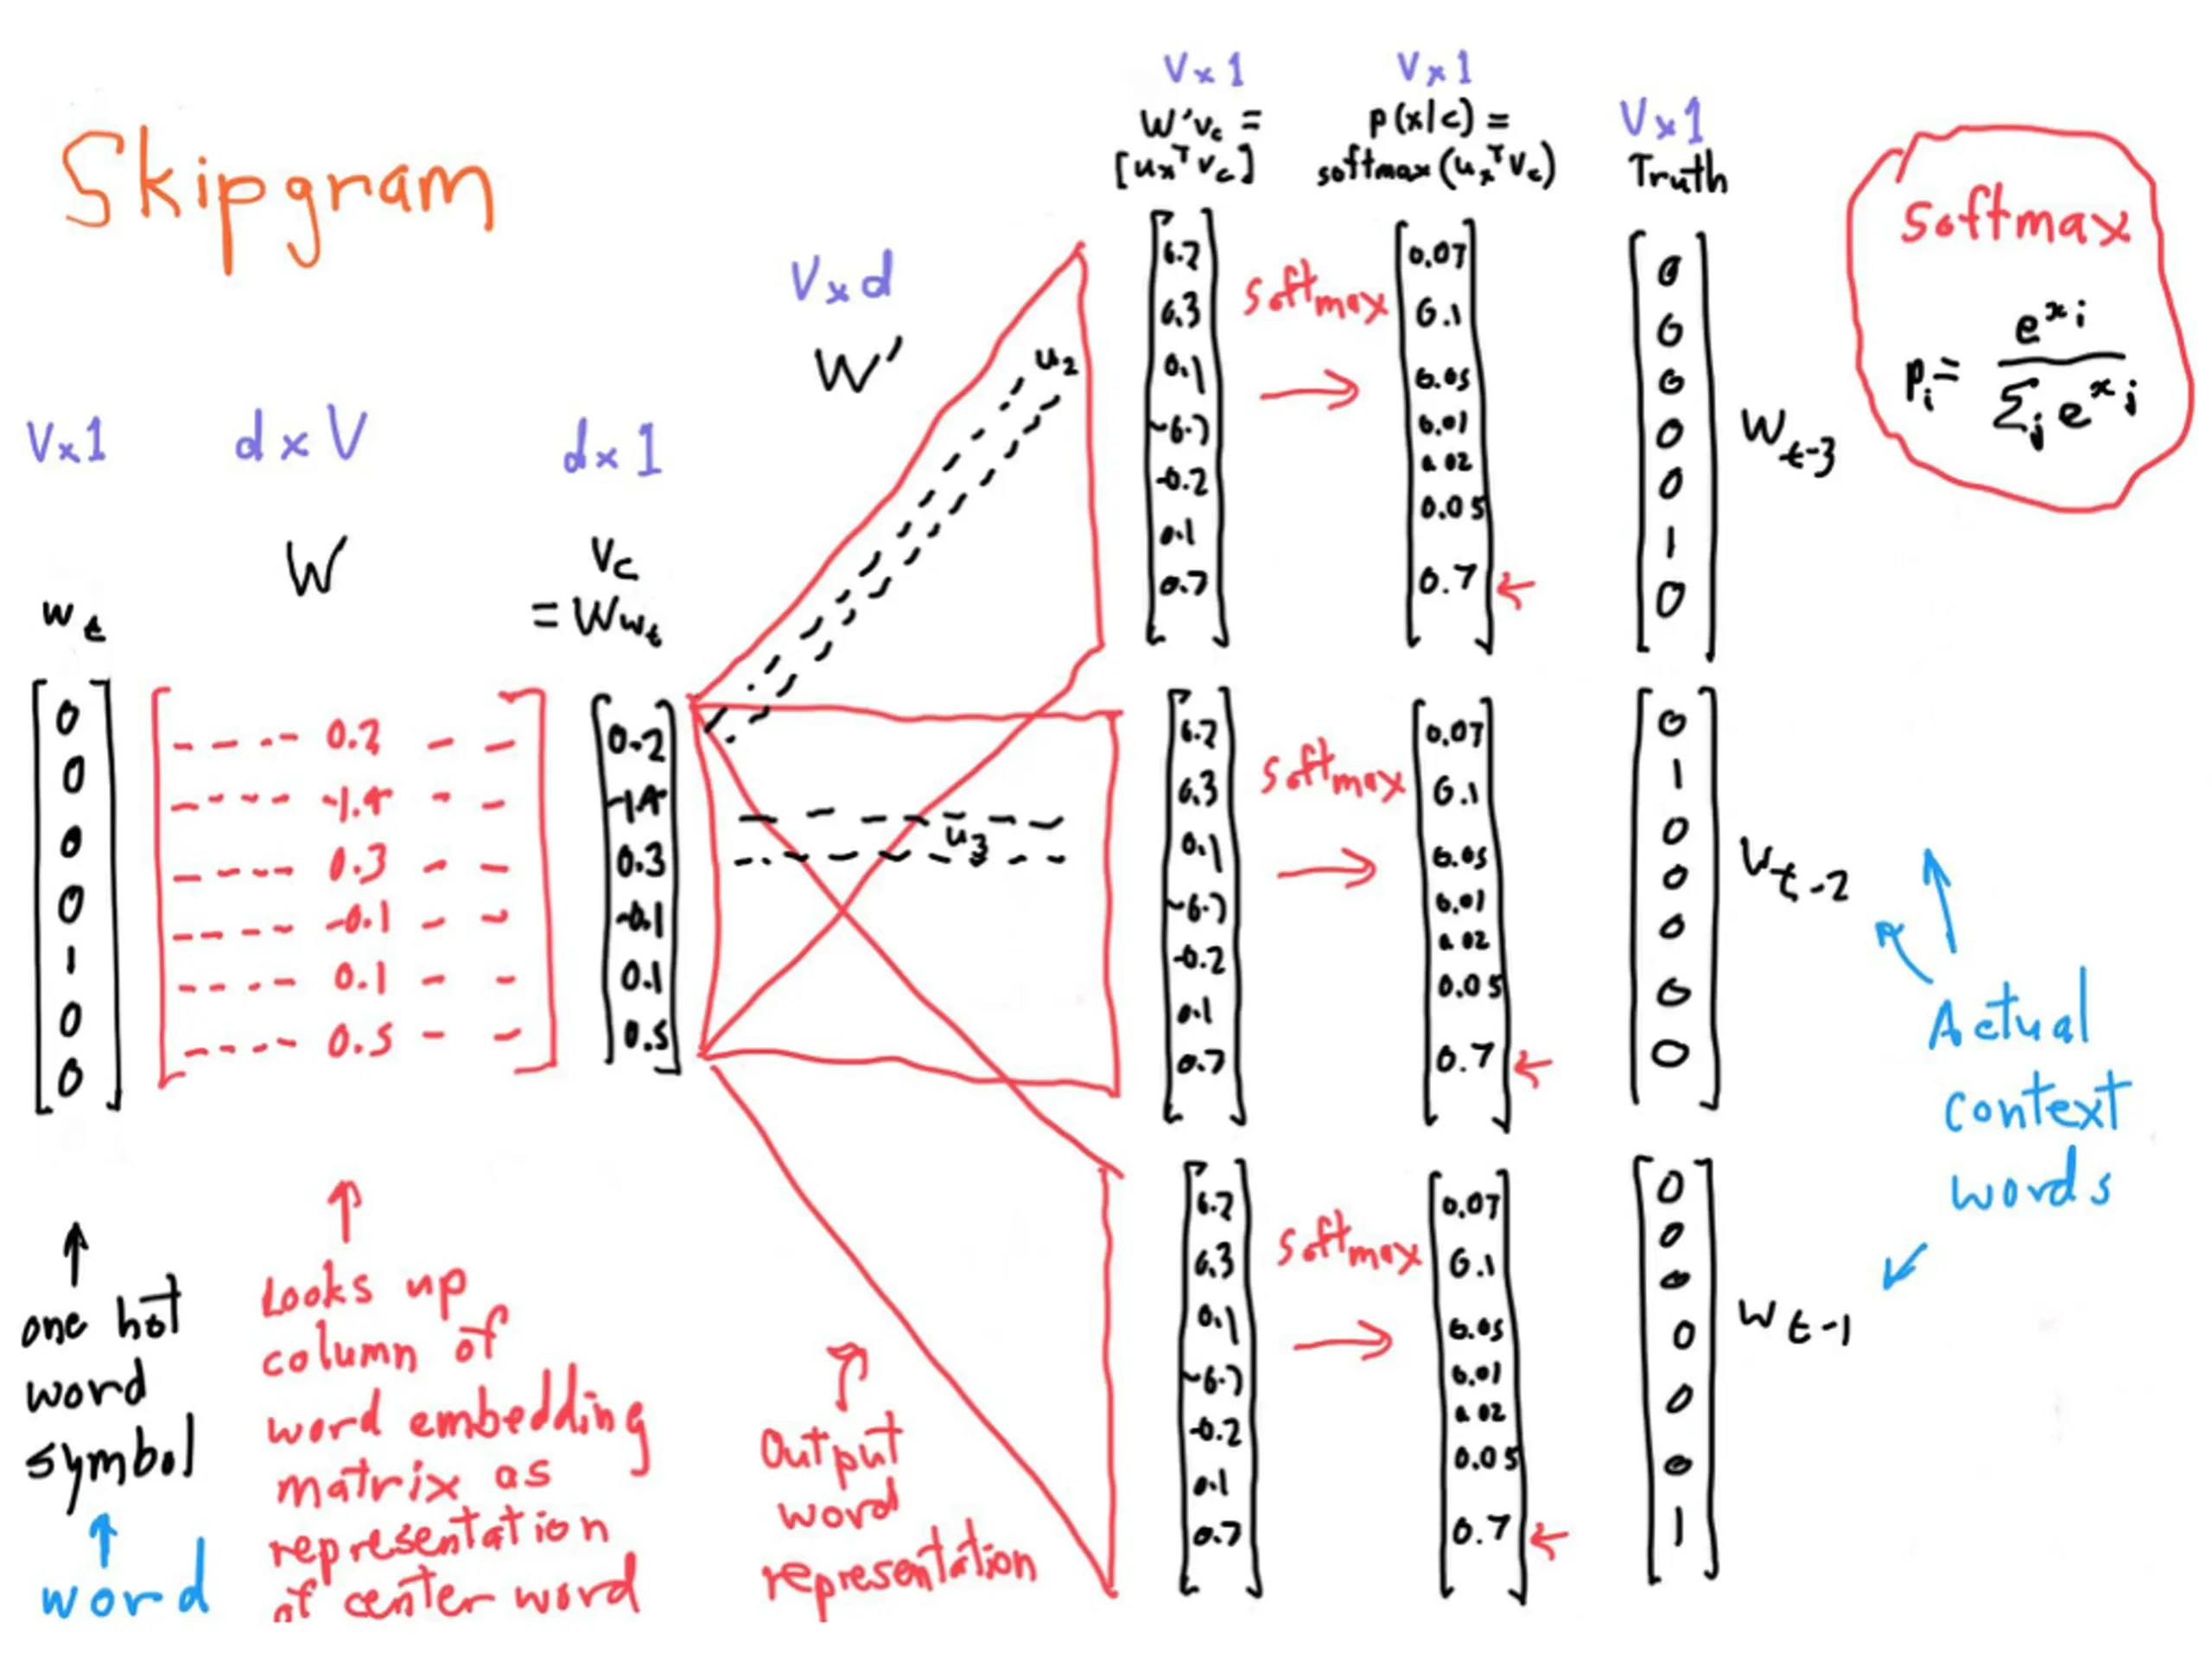 Skipgram
V×1
w_t
0
0
0
0
1
0
0
one hot
word
symbol
word
d×V
W
0.2
-1.4
0.3
-0.1
0.1
0.5
Looks up
column of
word embedding
matrix as
representation
of center word
d×1
v_c
= Ww_t
0.2
-1.4
0.3
-0.1
0.1
0.5
V×d
W'
u_2
u_3
Output
word
representation
V×1
W'v_c =
[u_x^T v_c]
6.7
6.3
0.1
-6.7
-0.2
0.1
0.7
softmax
V×1
p(x|c) =
softmax(u_x^T v_c)
0.07
0.1
0.05
0.01
0.02
0.05
0.7
V×1
Truth
0
0
0
0
0
1
0
w_t-3
6.7
6.3
0.1
-6.7
-0.2
0.1
0.7
softmax
0.07
0.1
0.05
0.01
0.02
0.05
0.7
0
1
0
0
0
0
0
w_t-2
6.7
6.3
0.1
-6.7
-0.2
0.1
0.7
softmax
0.07
0.1
0.05
0.01
0.02
0.05
0.7
0
0
0
0
0
0
1
w_t-1
Actual
context
words
softmax
p_i = e^x_i / Σ_j e^x_j